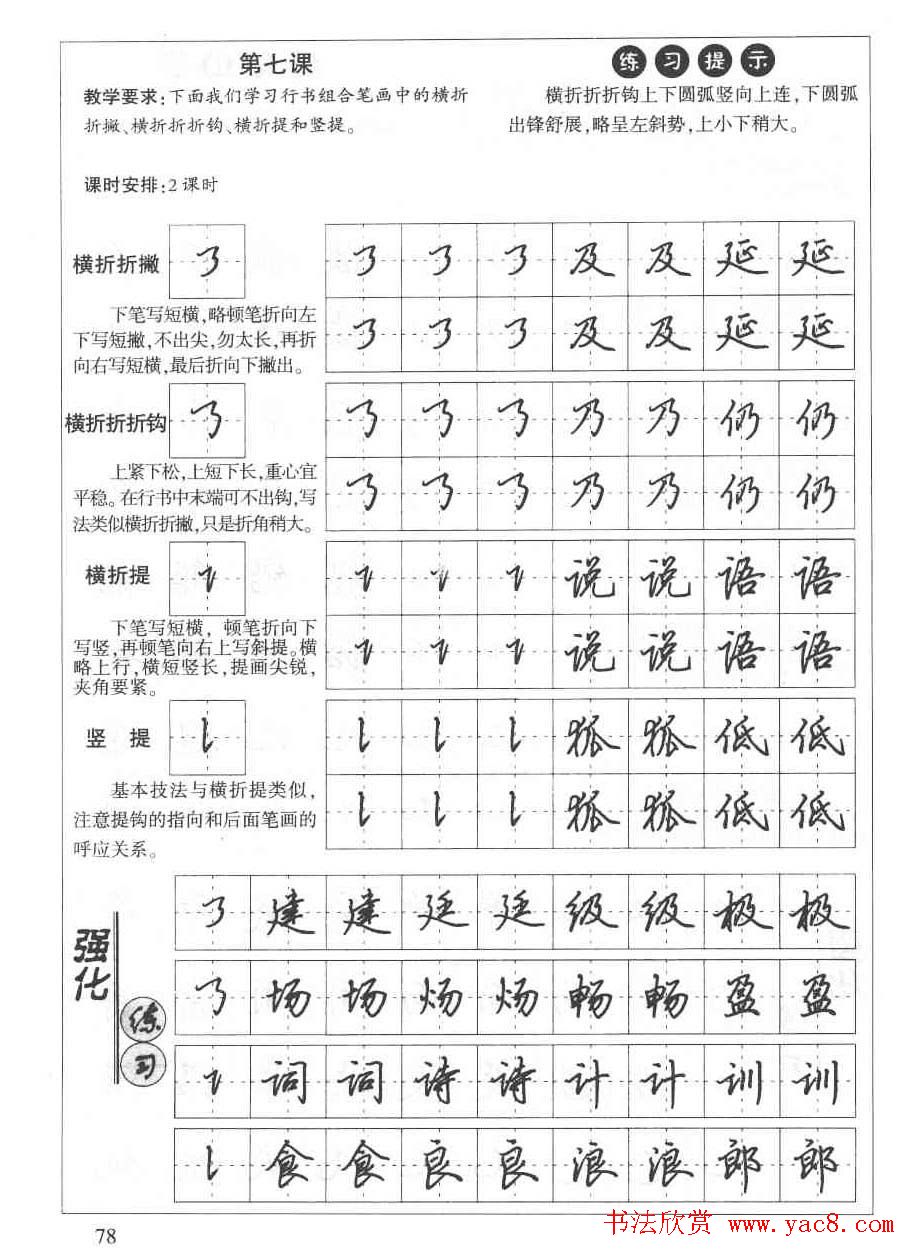 第七课
教学要求:下面我们学习行书组合笔画中的横折
折撇、横折折折钩、横折提和竖提。
课时安排:2课时
练习提示
横折折折钩上下圆弧竖向上连,下圆弧
出锋舒展,略呈左斜势,上小下稍大。
横折折撇
下笔写短横,略顿笔折向左
下写短撇,不出尖,勿太长,再折
向右写短横,最后折向下撇出。
及 及 延 延
及 及 延 延
横折折折钩
上紧下松,上短下长,重心宜
平稳。在行书中末端可不出钩,写
法类似横折折撇,只是折角稍大。
乃 乃 仍 仍
乃 乃 仍 仍
横折提
下笔写短横,顿笔折向下
写竖,再顿笔向右上写斜提。横
略上行,横短竖长,提画尖锐,
夹角要紧。
说 说 语 语
说 说 语 语
竖 提
基本技法与横折提类似,
注意提钩的指向和后面笔画的
呼应关系。
狐 狐 低 低
狐 狐 低 低
强化
练习
建 建 廷 廷 级 级 极 极
场 场 炀 炀 畅 畅 盈 盈
词 词 诗 诗 计 计 训 训
食 食 良 良 浪 浪 郎 郎
78
书法欣赏 www.yac8.com